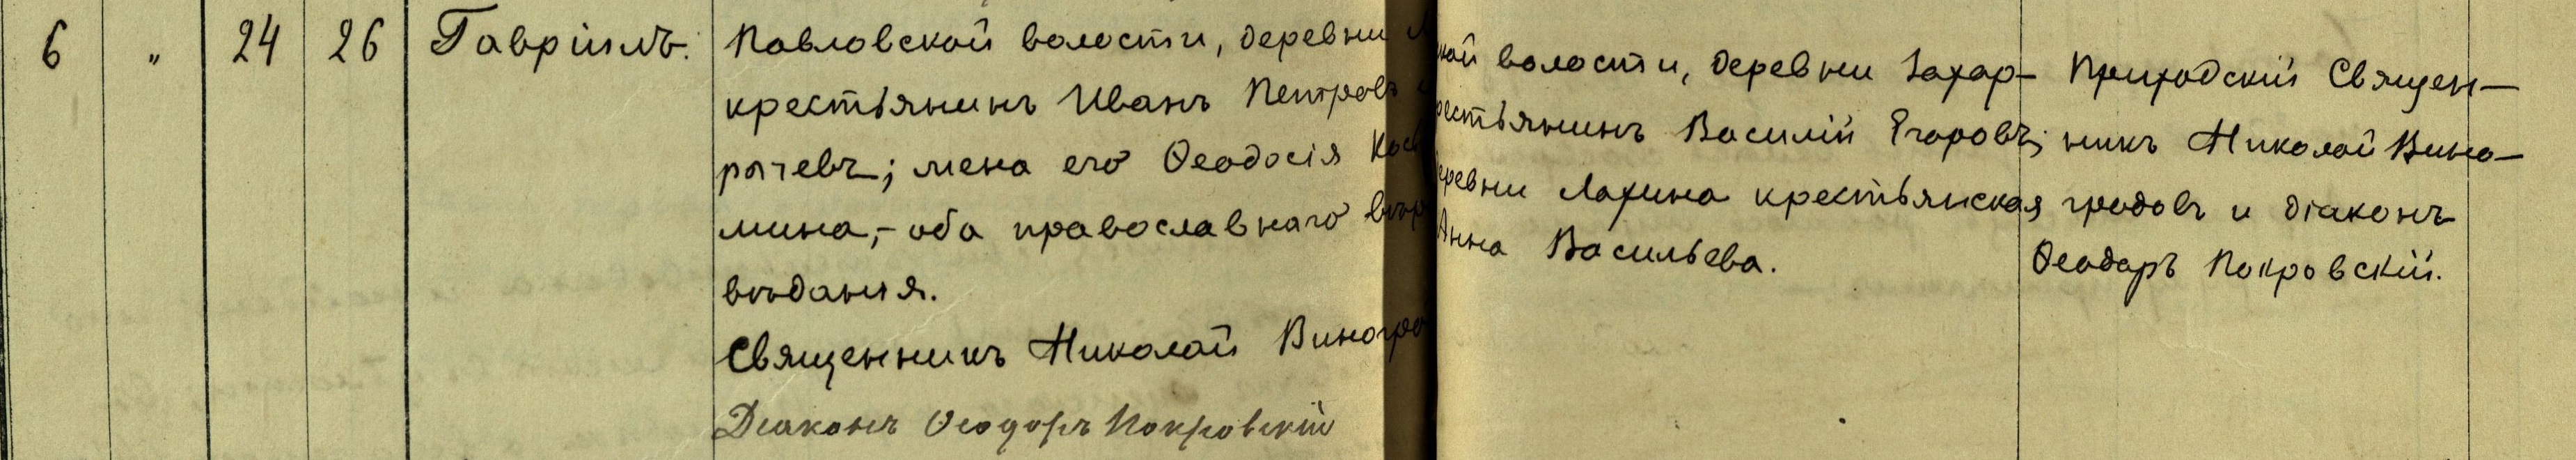 6 " 24 26 Гавріилъ.
Павловской волости, деревни
крестьянинъ Иванъ Петровъ
рычевъ; жена его Ѳеодосія
мина,- оба православнаго
вѣданія.
Священникъ Николай
Діаконъ Ѳеодоръ Покровскій
волости, деревни Захар-
Василій Егоровъ;
Лахина крестьянская
Анна Васильева.
Приходскій Священ-
никъ Николай Вино-
градовъ и діаконъ
Ѳеодоръ Покровскій.